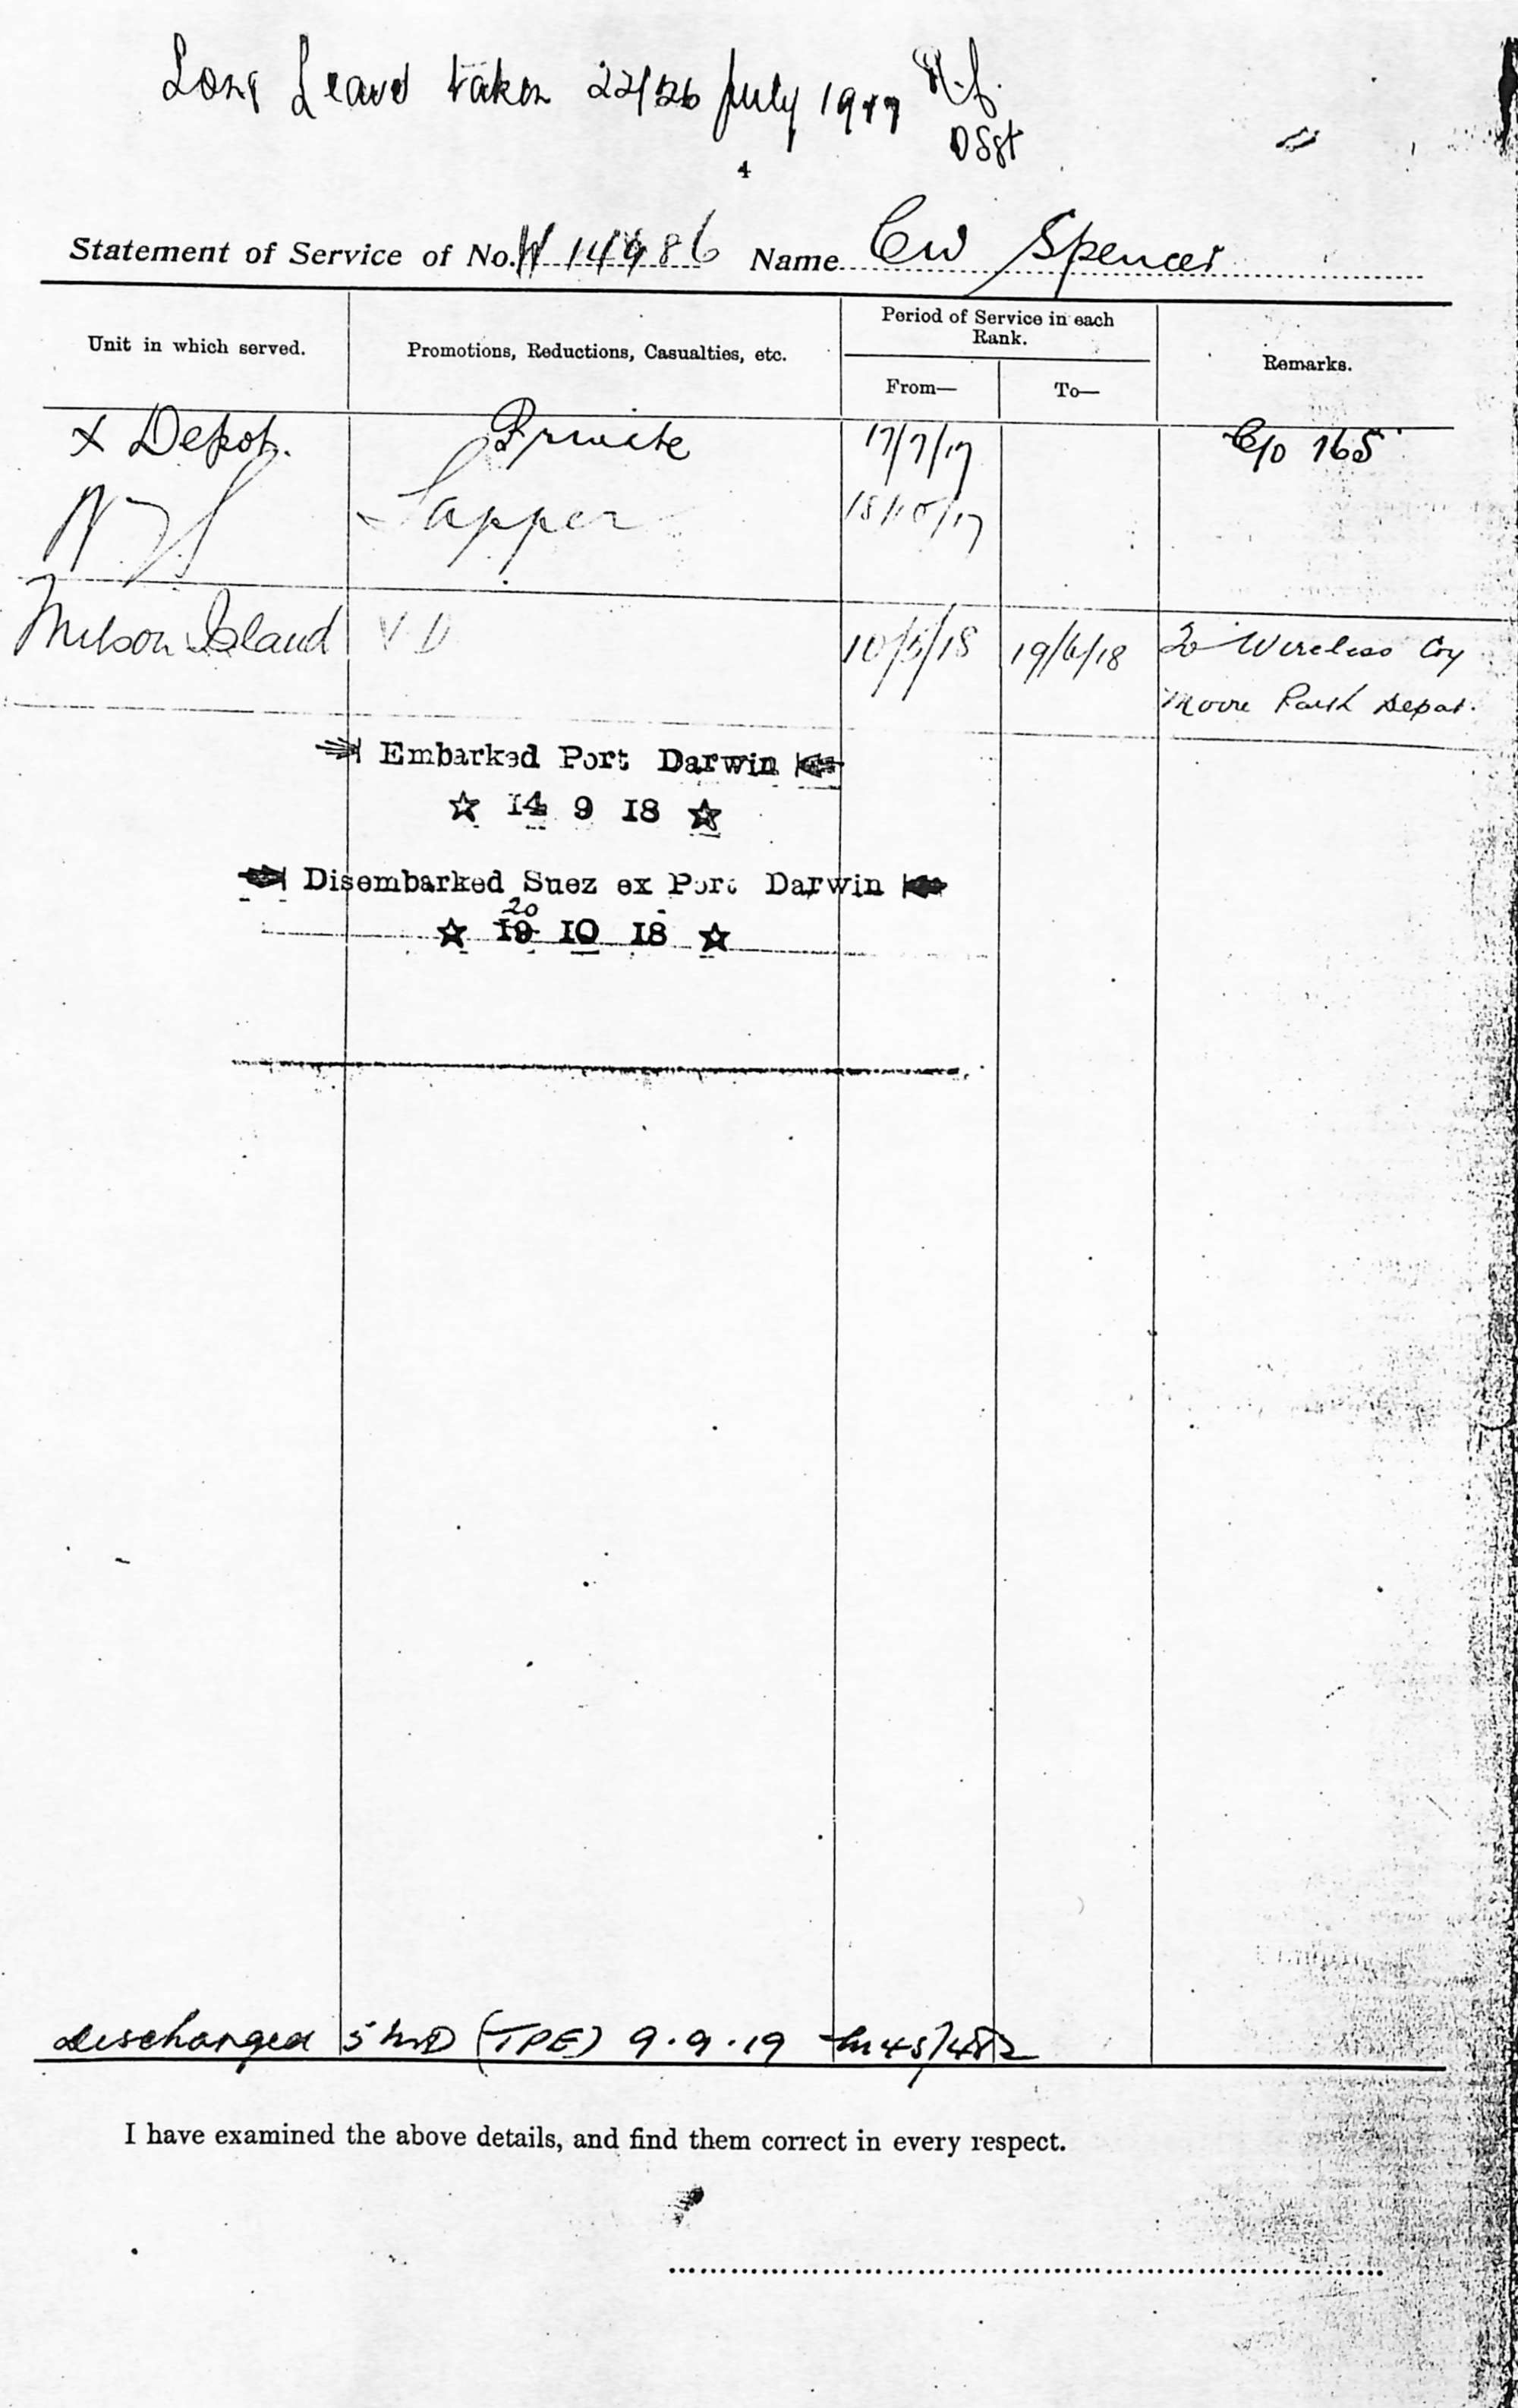 Long Leave taken 22/26 July 1917
4
Statement of Service of No. Name CW Spencer
Unit in which served. Promotions, Reductions, Casualties, etc. Period of Service in each Rank. Remarks.
From— To—
X Depot. Private 17/7/17 C/o 165
Sapper 18/10/17
Milson Island V D 10/5/18 19/6/18 To Wireless Coy
Moore Park Depot.
Embarked Port Darwin
☆ 14 9 18 ☆
Disembarked Suez ex Port Darwin
20
☆ 19 10 18 ☆
Discharged 5 MD (TPE) 9.9.19
I have examined the above details, and find them correct in every respect.